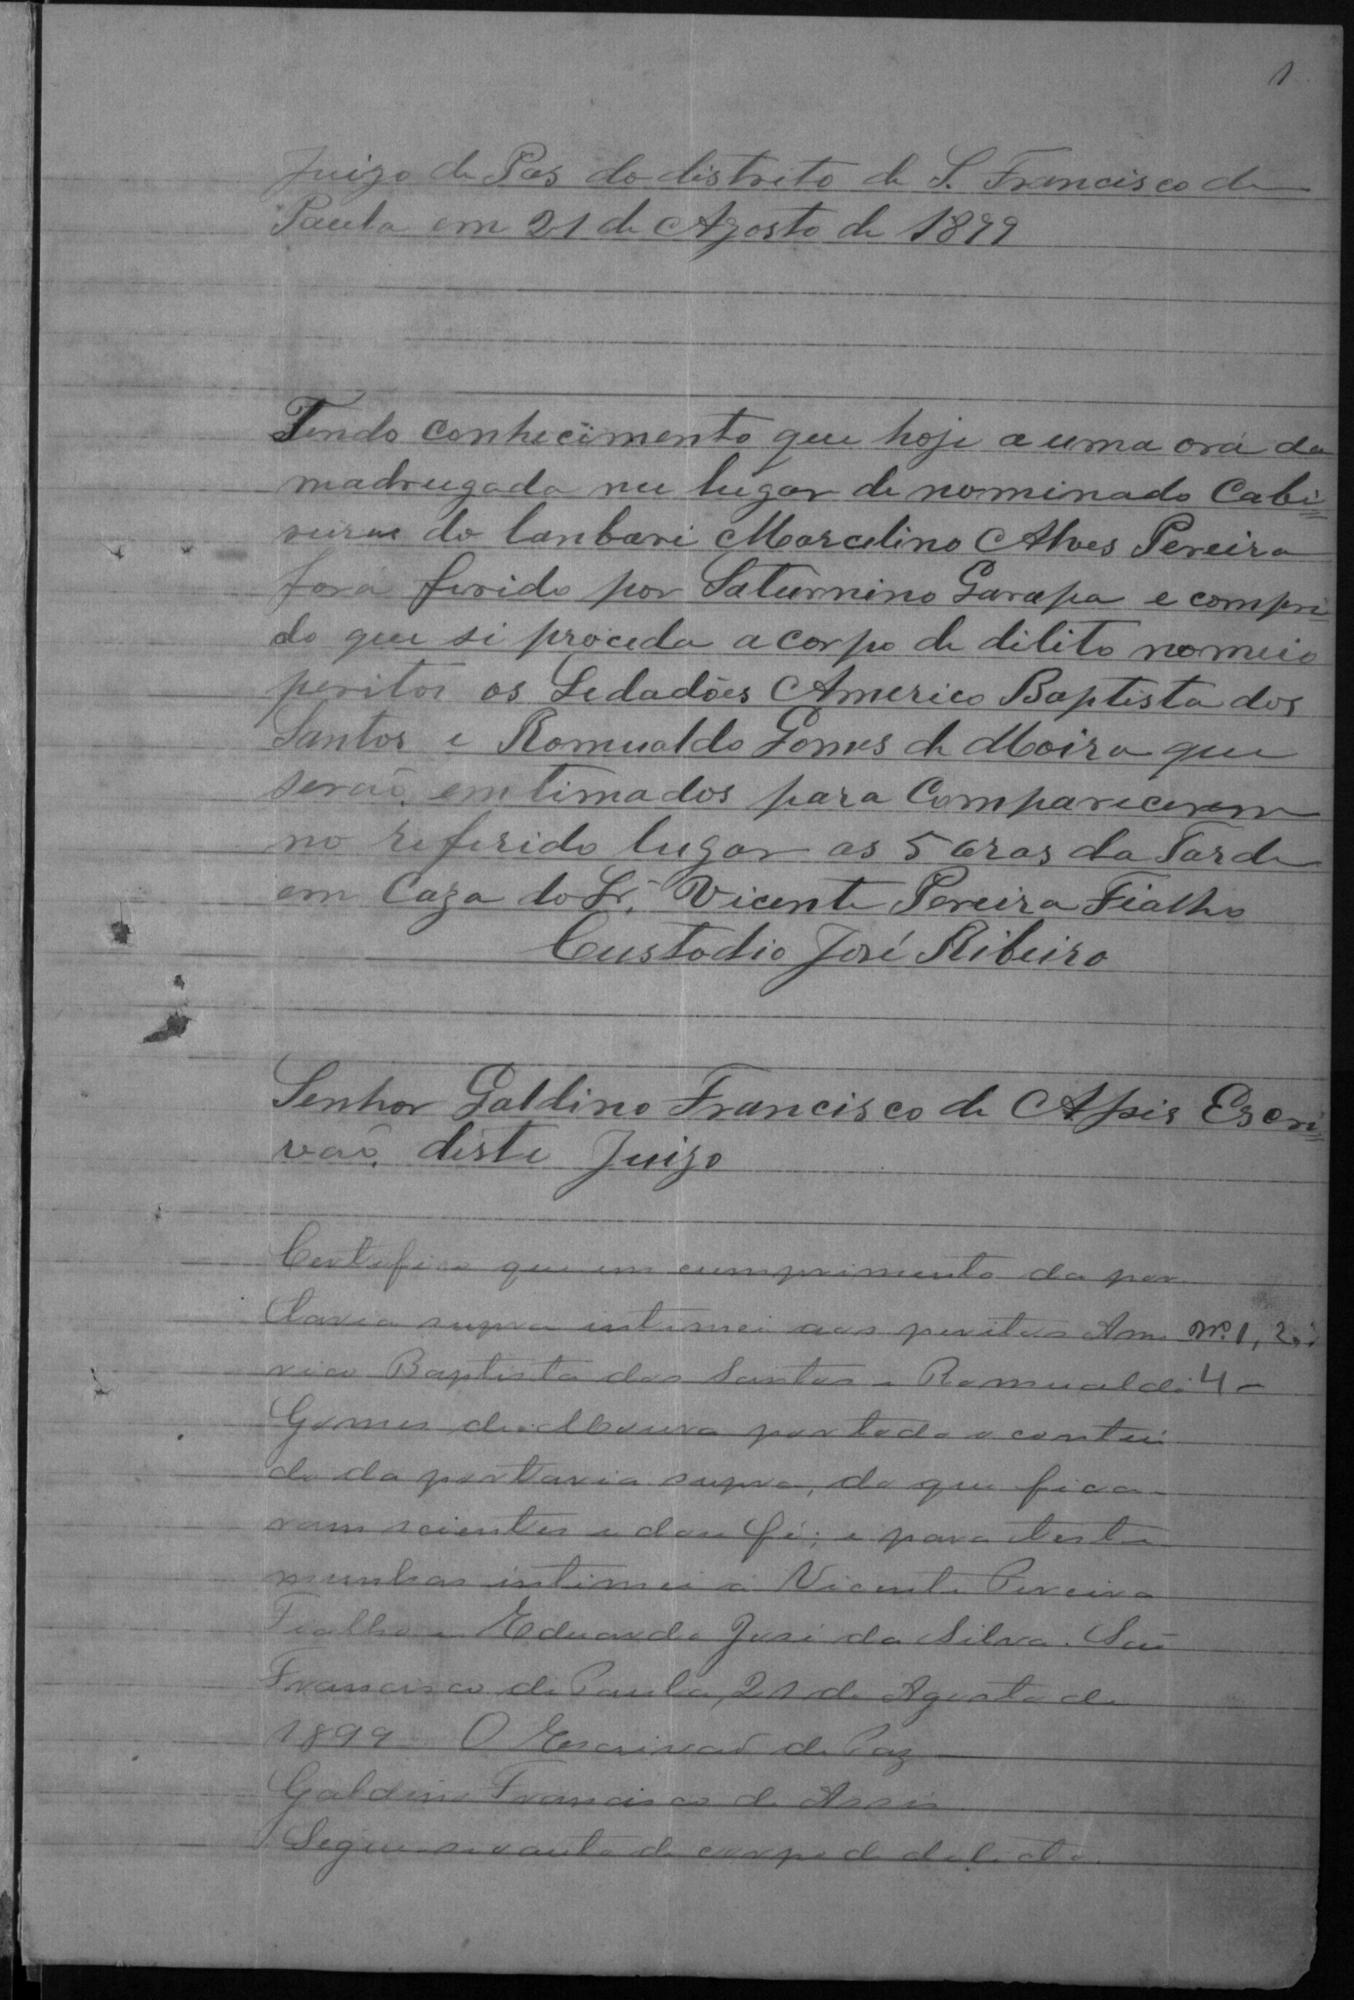 1
Juizo de Pas do distreto de S. Francisco de
Paula em 21 de Agosto de 1899
Tendo conhecimento que hoje a uma ora da
madrugada nu lugar de nominado Cabi=
seiras do lanbari Marcelino Alves Pereira
fora ferido por Saturnino Garapa e compri
do que si proceda a corpo de dilito nomeio
peritos os Sedadões Americo Baptista dos
Santos e Romualdo Gomes de Moira que
serão emtimados para Comparecerem
no referido lugar as 5 oras da Tarde
em Caza do Sr. Vicente Pereira Fialho
Custodio José Ribeiro
Senhor Galdino Francisco de Assis Escri=
vão deste Juizo
Certifico que em cumprimento da por
taria supra intimei aos peritos Ame
nº 1, 2
rico Baptista dos Santos e Romualdo
4
Gomes de Moura por todo o conteú
do da portaria supra, do que fica-
ram scientes e dou fé; e para teste
munhas intimei a Vicente Pereira
Fialho e Eduardo José da Silva. São
Francisco de Paula, 21 de Agosto de
1899 O Escrivão de Paz
Galdino Francisco de Assis
Segue-se o auto de corpo de delicto.